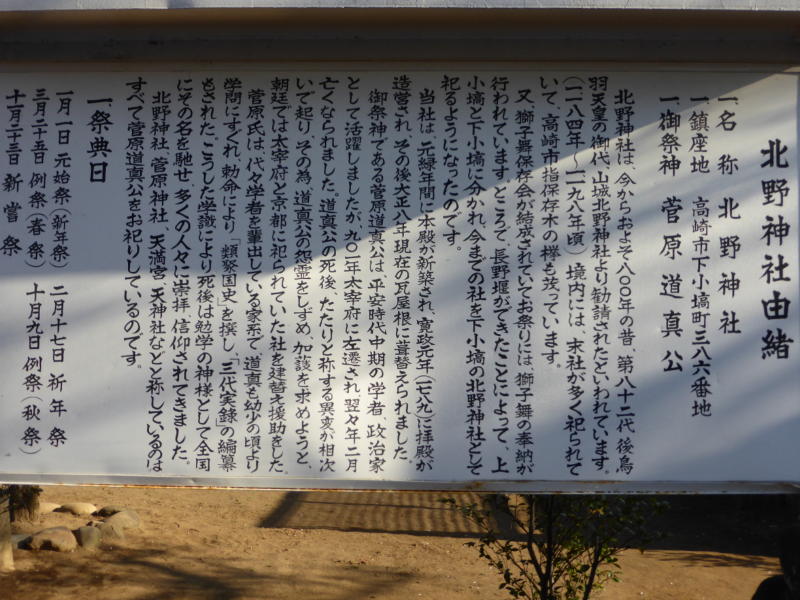 北野神社由緒
一、名称 北野神社
一、鎮座地 高崎市下小塙町三八六番地
一、御祭神 菅原道真公
北野神社は、今からおよそ八〇〇年の昔、第八十二代 後鳥
羽天皇の御代、山城北野神社より勧請されたといわれています。
（一一八四年～一一九八年頃） 境内には、末社が多く祀られて
いて、高崎市指保存木の欅も茂っています。
又、獅子舞保存会が結成されていてお祭りには、獅子舞の奉納が
行われています。ところで、長野堰ができたことによって、上
小塙と下小塙に分かれ、今までの社を下小塙の北野神社として
祀るようになったのです。
当社は、元縁年間に本殿が新築され、寛政元年（一七八九）に拝殿が
造営され、その後大正八年現在の瓦屋根に葺替えられました。
御祭神である菅原道真公は、平安時代中期の学者、政治家
として活躍しましたが、九〇一年太宰府に左遷され、翌々年二月
亡くなられました。道真公の死後、たたりと称する異変が相次
いで起り、その為、道真公の怨霊をしずめ、加護を求めようと、
朝廷では太宰府と京都に祀られていた社を建替え援助をした。
菅原氏は、代々学者を輩出している家系で、道真も幼少の頃より
学問にすぐれ、勅命により、「類聚国史」を撰し、「三代実録」の編纂
もされた。こうした学識により死後は勉学の神様として全国
にその名を馳せ、多くの人々に崇拝、信仰されてきました。
北野神社、菅原神社、天満宮、天神社などと称しているのは
すべて菅原道真公をお祀りしているのです。
一、祭典日
一月一日 元始祭（新年祭） 二月十七日 祈年祭
三月二十五日 例祭（春祭） 十月九日 例祭（秋祭）
十一月二十三日 新嘗祭